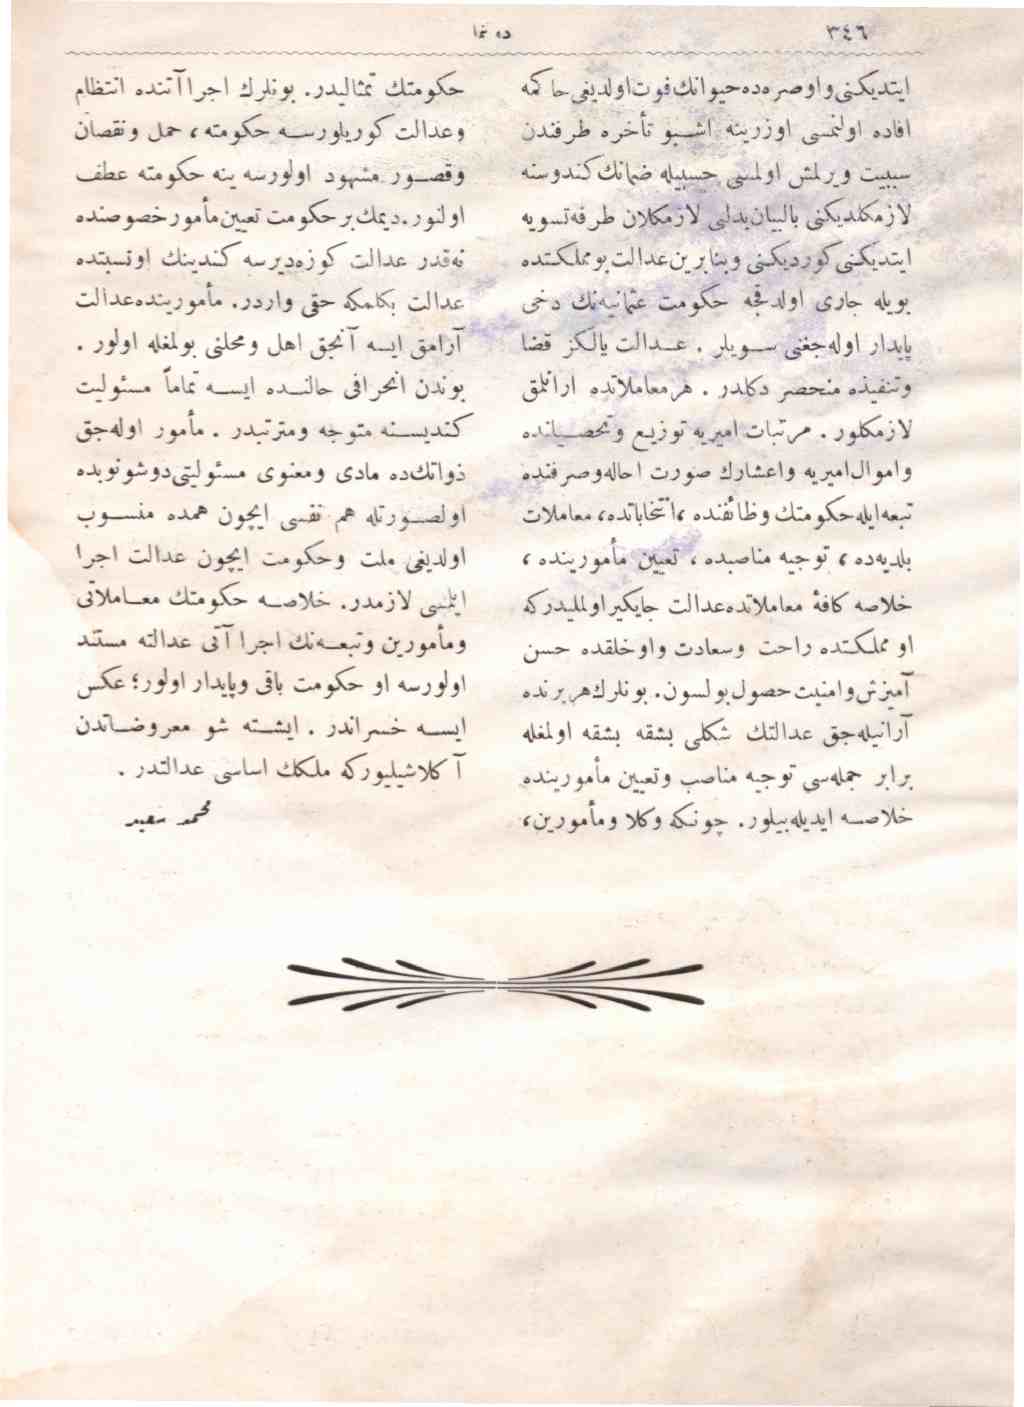 ٣٤٦
ده نما
ایتدیكنی و او صره‌ده حیوانك فوت اولدیغی حاكمه
افاده اولنمسی اوزرینه اشبو تأخره طرفندن
سببیت ویرلمش اولمسی حسبیله ضمانك كندوسنه
لازمكلدیكنی بالبیان بدلی لازمكلان طرفه تسویه
ایتدیكنی كوردیكنی وبنابرین عدالت بو مملكتده
بویله جاری اولدقجه حكومت عثمانیه‌نك دخی
پایدار اوله‌جغنی سویلر . عدالت یالكز قضا
وتنفیذه منحصر دكلدر . هر معاملاتده ارانلمق
لازمكلور . مرتبات امیریه توزیع وتحصیلنده
واموال امیریه واعشارك صورت احاله وصرفنده
تبعه ایله حكومتك وظائفنده ، انتخاباتده ، معاملات
بلدیه‌ده ، توجیه مناصبده ، تعیین مأمورینده ،
خلاصه كافهٔ معاملاتده عدالت جایكیر اولملیدركه
او مملكتده راحت وسعادت واو خلقده حسن
آمیزش وامنیت حصول بولسون . بونلرك هر برنده
آرانیله‌جق عدالتك شكلی بشقه بشقه اولمغله
برابر جمله‌سی توجیه مناصب وتعیین مأمورینده
خلاصه ایدیله‌بیلور . چونكه وكلا ومأمورین ،
حكومتك تمثالیدر . بونلرك اجراآتنده انتظام
وعدالت كوریلورسه حكومته ، حمل ونقصان
وقصور مشهود اولورسه ینه حكومته عطف
اولنور . دیمك بر حكومت تعیین مأمور خصوصنده
نه‌قدر عدالت كوزه‌دیرسه كندینك اونسبتده
عدالت بكلمكه حقی واردر . مأمورینده عدالت
آرامق ایسه آنجق اهل ومحلنی بولمغله اولور .
بوندن انحرافی حالنده ایسه تماماً مسئولیت
كندیسنه متوجه ومترتبدر . مأمور اوله‌جق
ذواتك‌ده مادی ومعنوی مسئولیتی دوشونوبده
اولصورتله هم نفسی ایچون همده منسوب
اولدیغی ملت وحكومت ایچون عدالت اجرا
ایتلمسی لازمدر . خلاصه حكومتك معاملاتی
ومأمورین وتبعه‌نك اجراآتی عدالته مستند
اولورسه او حكومت باقی وپایدار اولور ؛ عكس
ایسه خسراندر . ایشته شو معروضاتدن
آكلاشیلیوركه ملكك اساسی عدالتدر .
محمد سعید